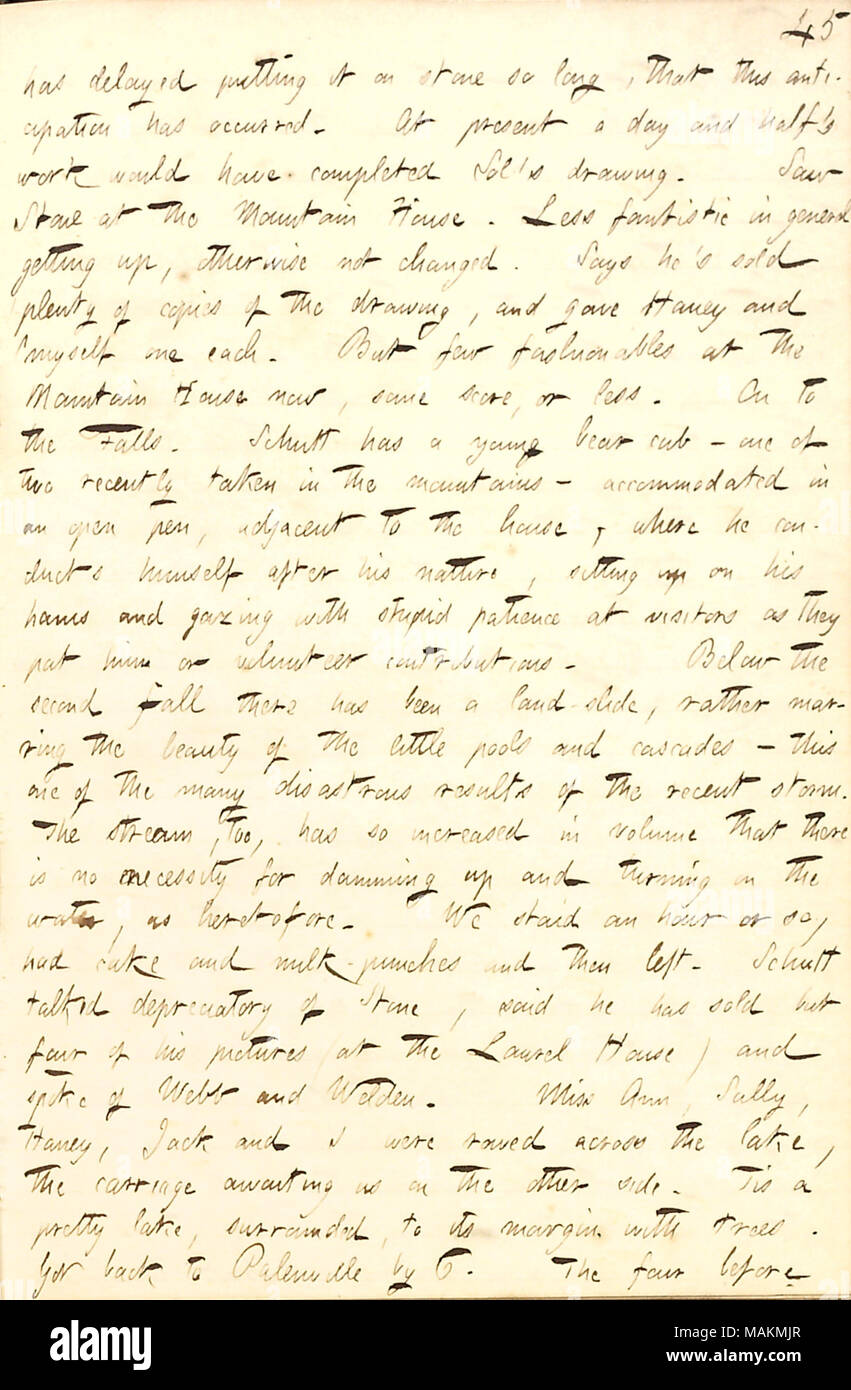 45
has delayed putting it on stone so long, that this anti-
cipation has occurred. At present a day and half's
work would have completed Sol's drawing. Saw
Stone at the Mountain House. Less fantistic in general
getting up, otherwise not changed. Says he's sold
plenty of copies of the drawing, and gave Haney and
myself one each. But few fashionables at the
Mountain House now, some score, or less. On to
the Falls. Schutt has a young bear cub — one of
two recently taken in the mountains — accommodated in
an open pen, adjacent to the house, where he con-
ducts himself after his nature, sitting up on his
hams and gazing with stupid patience at visitors as they
pat him or volunteer contributions. Below the
second fall there has been a land-slide, rather mar-
ring the beauty of the little pools and cascades — this
one of the many disastrous results of the recent storm.
The stream, too, has so increased in volume that there
is no necessity for damming up and turning on the
water, as heretofore. We staid an hour or so,
had cake and milk-punches and then left. Schutt
talked depreciatory of Stone, said he has sold but
four of his pictures (at the Laurel House) and
spoke of Webb and Welden. Miss Ann, Sally,
Haney, Jack and I were rowed across the lake,
the carriage awaiting us on the other side. Tis a
pretty lake, surrounded, to its margin with trees.
Got back to Palenville by 6. The four before
alamy
Image ID: MAKMJR
www.alamy.com